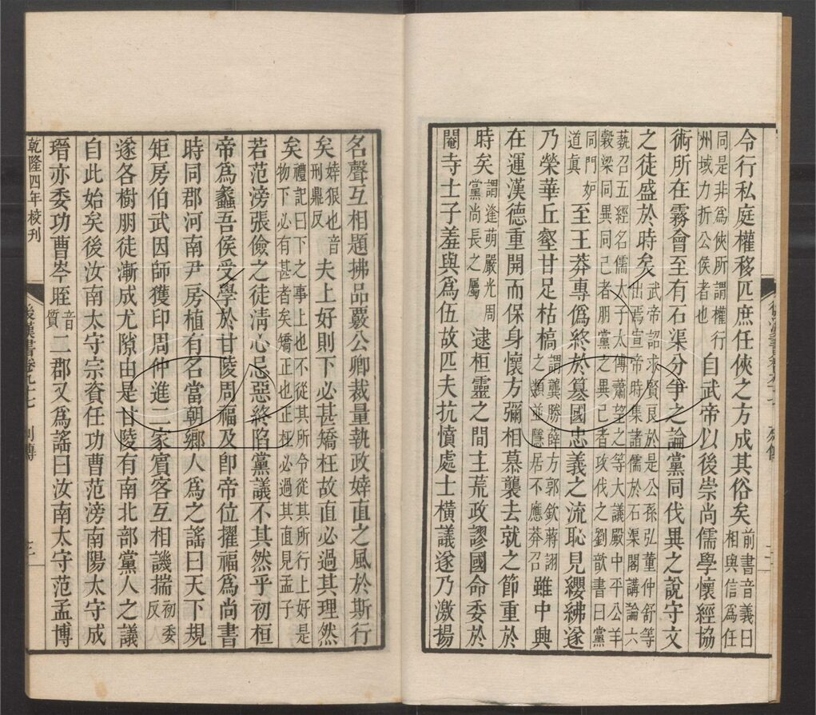 令行私庭權移匹庶任俠之方成其俗矣前書音義曰相與信爲任
同是非爲俠所謂權行州域力折公侯者也自武帝以後崇尚儒學懷經協
術所在霧會至有石渠分爭之論黨同伐異之說守文
之徒盛於時矣武帝詔求賢良於是公孫弘董仲舒等出焉宣帝時集諸儒於石渠閣講論六
藝召五經名儒太子太傅蕭望之等大議殿中平公羊穀梁同異同己者朋黨之異己者攻伐之劉歆書曰黨
同門妒道眞至王莽專僞終於簒國忠義之流恥見纓紼遂
乃榮華丘壑甘足枯槁謂龔勝薛方郭欽蔣詡之類並隱居不應莽召雖中興
在運漢德重開而保身懷方彌相慕襲去就之節重於
時矣謂逢萌嚴光周黨尚長之屬逮桓靈之間主荒政謬國命委於
閹寺士子羞與爲伍故匹夫抗憤處士橫議遂乃激揚
名聲互相題拂品覈公卿裁量執政婞直之風於斯行
矣婞狠也音刑鼎反夫上好則下必甚矯枉故直必過其理然
矣禮記曰下之事上也不從其所令從其所行上好是物下必有甚者矣矯正也正枉必過其直見孟子
若范滂張儉之徒淸心忌惡終陷黨議不其然乎初桓
帝爲蠡吾侯受學於甘陵周福及卽帝位擢福爲尚書
時同郡河南尹房植有名當朝鄉人爲之謠曰天下規
矩房伯武因師獲印周仲進二家賓客互相譏揣初委反
遂各樹朋徒漸成尤隙由是甘陵有南北部黨人之議
自此始矣後汝南太守宗資任功曹范滂南陽太守成
瑨亦委功曹岑晊音質二郡又爲謠曰汝南太守范孟博
乾隆四年校刊
後漢書卷九十七
列傳